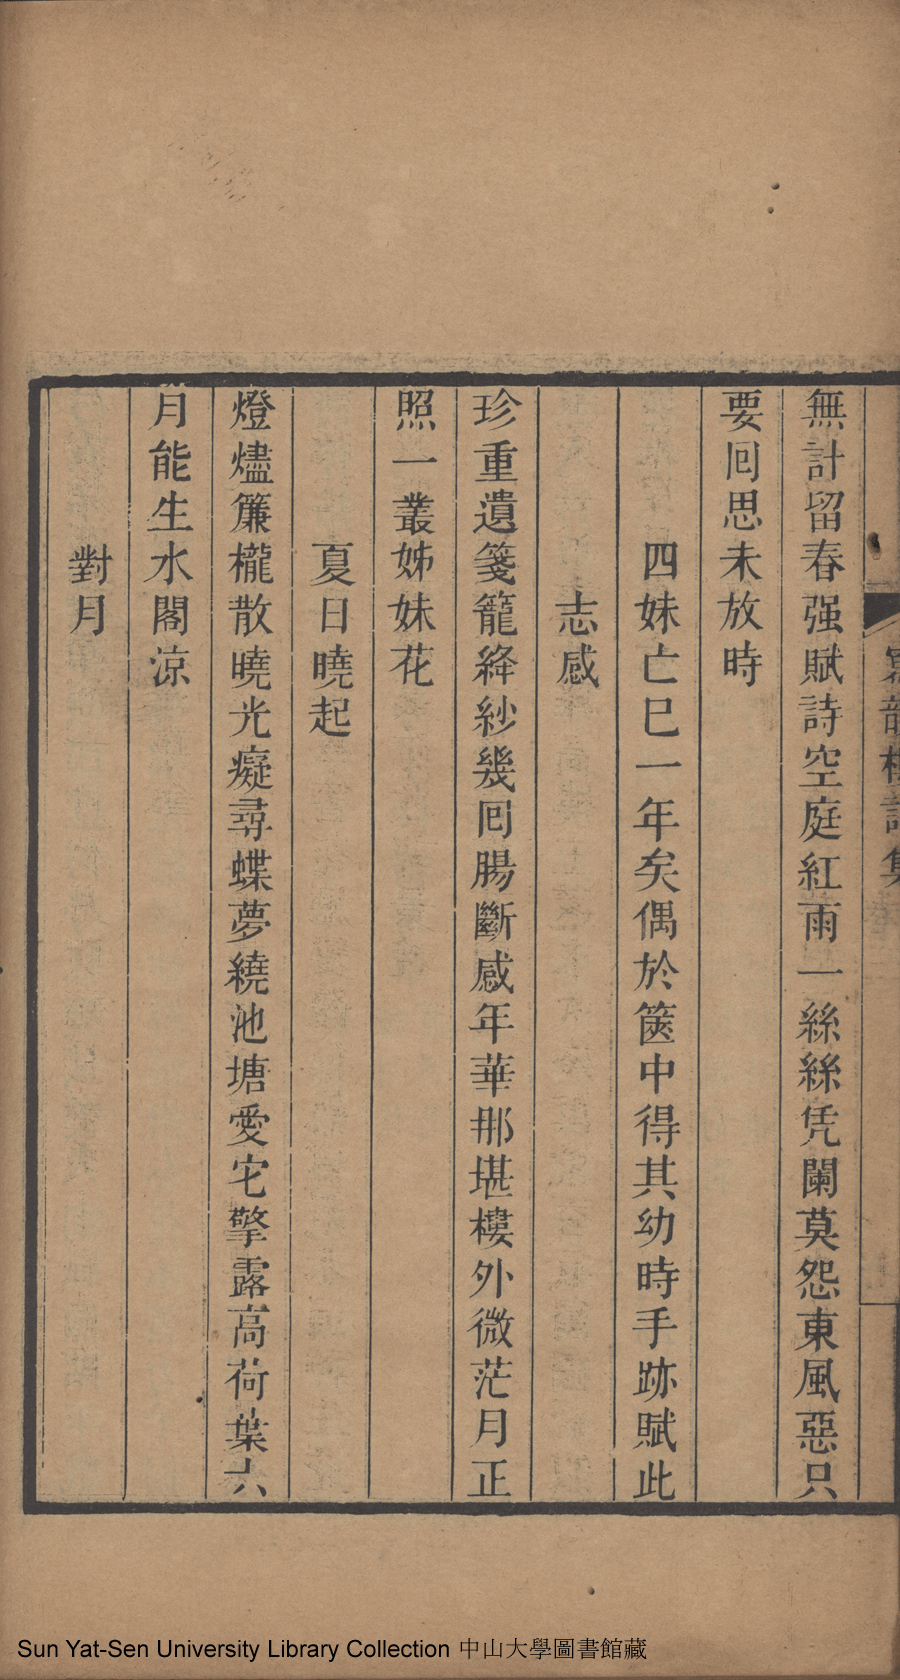 無計留春强賦詩空庭紅雨一絲絲凭闌莫怨東風惡只
要回思未放時
四妹亡已一年矣偶於篋中得其幼時手跡賦此
志感
珍重遺箋籠絳紗幾回腸斷感年華那堪樓外微茫月正
照一叢姊妹花
夏日曉起
燈燼簾櫳散曉光癡尋蝶夢繞池塘愛它擎露高荷葉六
月能生水閣涼
對月
Sun Yat-Sen University Library Collection 中山大學圖書館藏